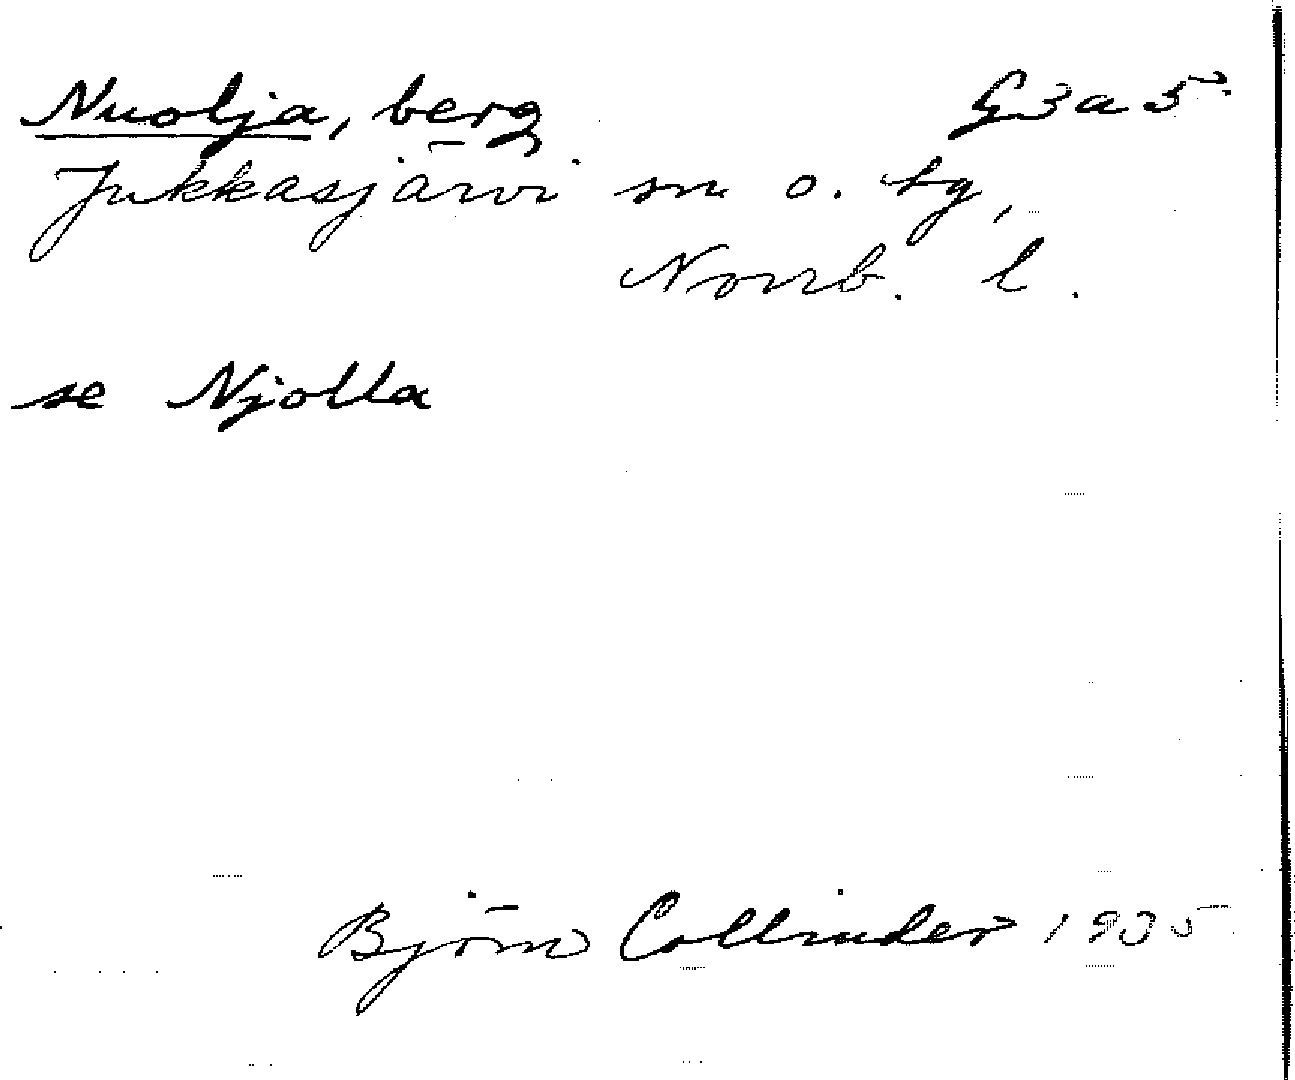 Nuolja, berg G3a5
Jukkasjärvi sn o. tg,
Norrb. l.
se Njolla
Björn Collinder 1935